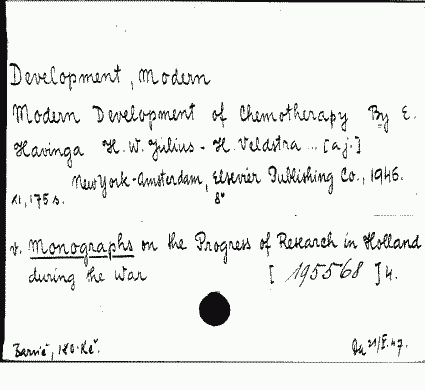 Development, Modern
Modern Development of Chemotherapy By E.
Havinga H. W. Julius - H. Veldstra ... [aj.]
New York - Amsterdam, Elsevier Publishing Co., 1946.
XI, 175 s. 8°
v. Monographs on the Progress of Research in Holland
during the War [195568] 4.
180.Kč. 21/X.47.